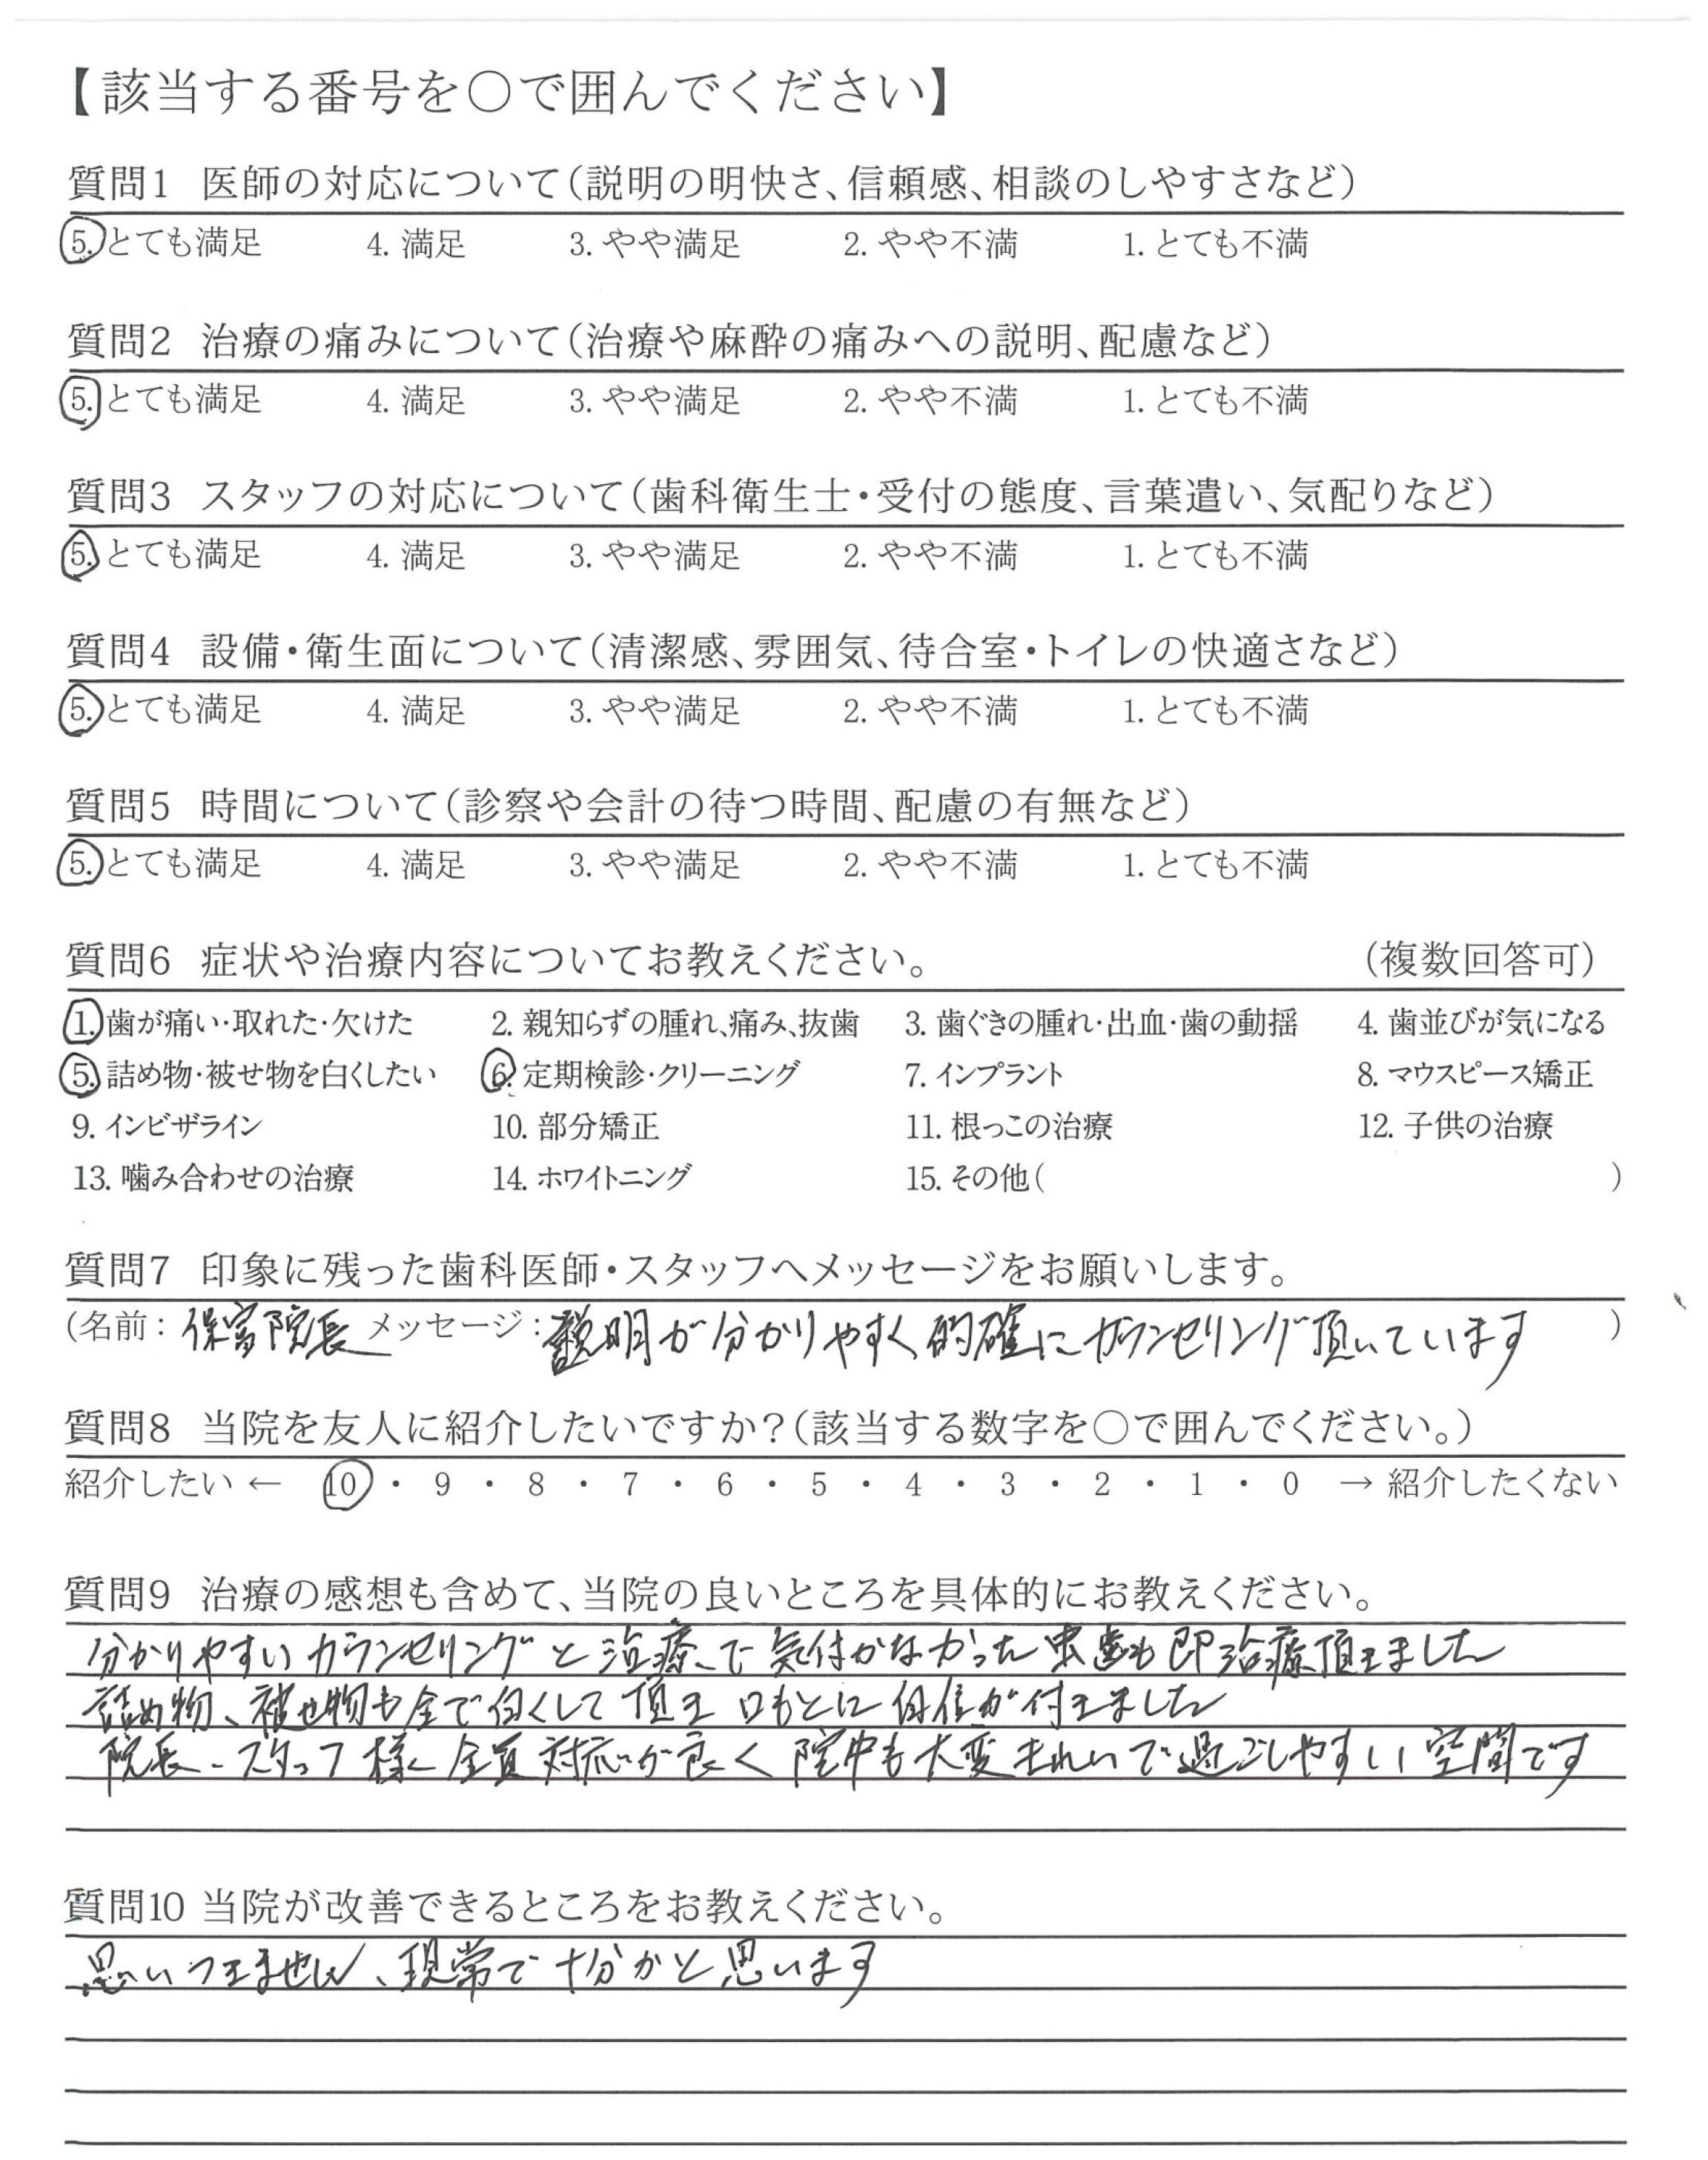 【該当する番号を○で囲んでください】
質問1 医師の対応について(説明の明快さ、信頼感、相談のしやすさなど)
5. とても満足 4. 満足 3. やや満足 2. やや不満 1. とても不満
質問2 治療の痛みについて(治療や麻酔の痛みへの説明、配慮など)
5. とても満足 4. 満足 3. やや満足 2. やや不満 1. とても不満
質問3 スタッフの対応について(歯科衛生士・受付の態度、言葉遣い、気配りなど)
5. とても満足 4. 満足 3. やや満足 2. やや不満 1. とても不満
質問4 設備・衛生面について(清潔感、雰囲気、待合室・トイレの快適さなど)
5. とても満足 4. 満足 3. やや満足 2. やや不満 1. とても不満
質問5 時間について(診察や会計の待つ時間、配慮の有無など)
5. とても満足 4. 満足 3. やや満足 2. やや不満 1. とても不満
質問6 症状や治療内容についてお教えください。 (複数回答可)
1. 歯が痛い・取れた・欠けた 2. 親知らずの腫れ、痛み、抜歯 3. 歯ぐきの腫れ・出血・歯の動揺 4. 歯並びが気になる
5. 詰め物・被せ物を白くしたい 6. 定期検診・クリーニング 7. インプラント 8. マウスピース矯正
9. インビザライン 10. 部分矯正 11. 根っこの治療 12. 子供の治療
13. 噛み合わせの治療 14. ホワイトニング 15. その他( )
質問7 印象に残った歯科医師・スタッフへメッセージをお願いします。
(名前: 保富院長 メッセージ: 説明が分かりやすく的確にカウンセリング頂いています )
質問8 当院を友人に紹介したいですか?(該当する数字を○で囲んでください。)
紹介したい ← 10 ・ 9 ・ 8 ・ 7 ・ 6 ・ 5 ・ 4 ・ 3 ・ 2 ・ 1 ・ 0 → 紹介したくない
質問9 治療の感想も含めて、当院の良いところを具体的にお教えください。
分かりやすいカウンセリングと治療で気付かなかった虫歯も即治療頂きました
詰め物、被せ物も全て白くして頂き口もとに自信が付きました
院長、スタッフ様全員対応が良く院中も大変きれいで過ごしやすい空間です
質問10 当院が改善できるところをお教えください。
思いつきません、現常で十分かと思います